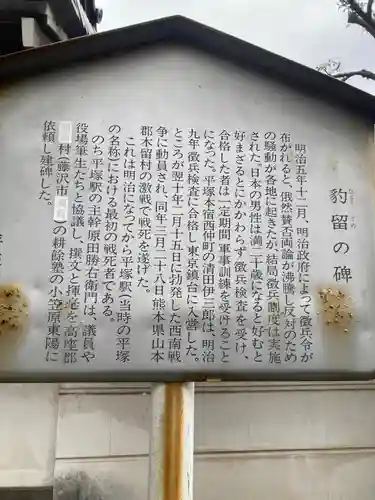 豹留の碑
明治五年十二月、明治政府によって徴兵令が
布かれると、俄然賛否両論が沸騰し反対のため
の騒動が各地に起きたが、結局徴兵制度は実施
された。日本の男性は満二十歳になると好むと
好まざるとにかかわらず徴兵検査を受け、
合格した者は一定期間軍事訓練を受けること
になった。平塚本宿西仲町の清田伊三郎は、明治
九年徴兵検査に合格し東京鎮台に入営した。
ところが翌十年二月十五日に勃発した西南戦
争に動員され、同年三月二十八日熊本県山本
郡木留村の激戦で戦死を遂げた。
これは明治になってから平塚駅（当時の平塚
の名称）における最初の戦死者である。
のち平塚駅の主幹原田勝右衛門は、議員や
役場筆生たちと協議し、撰文と揮毫を高座郡
村（藤沢市）の耕餘塾の小笠原東陽に
依頼し建碑した。